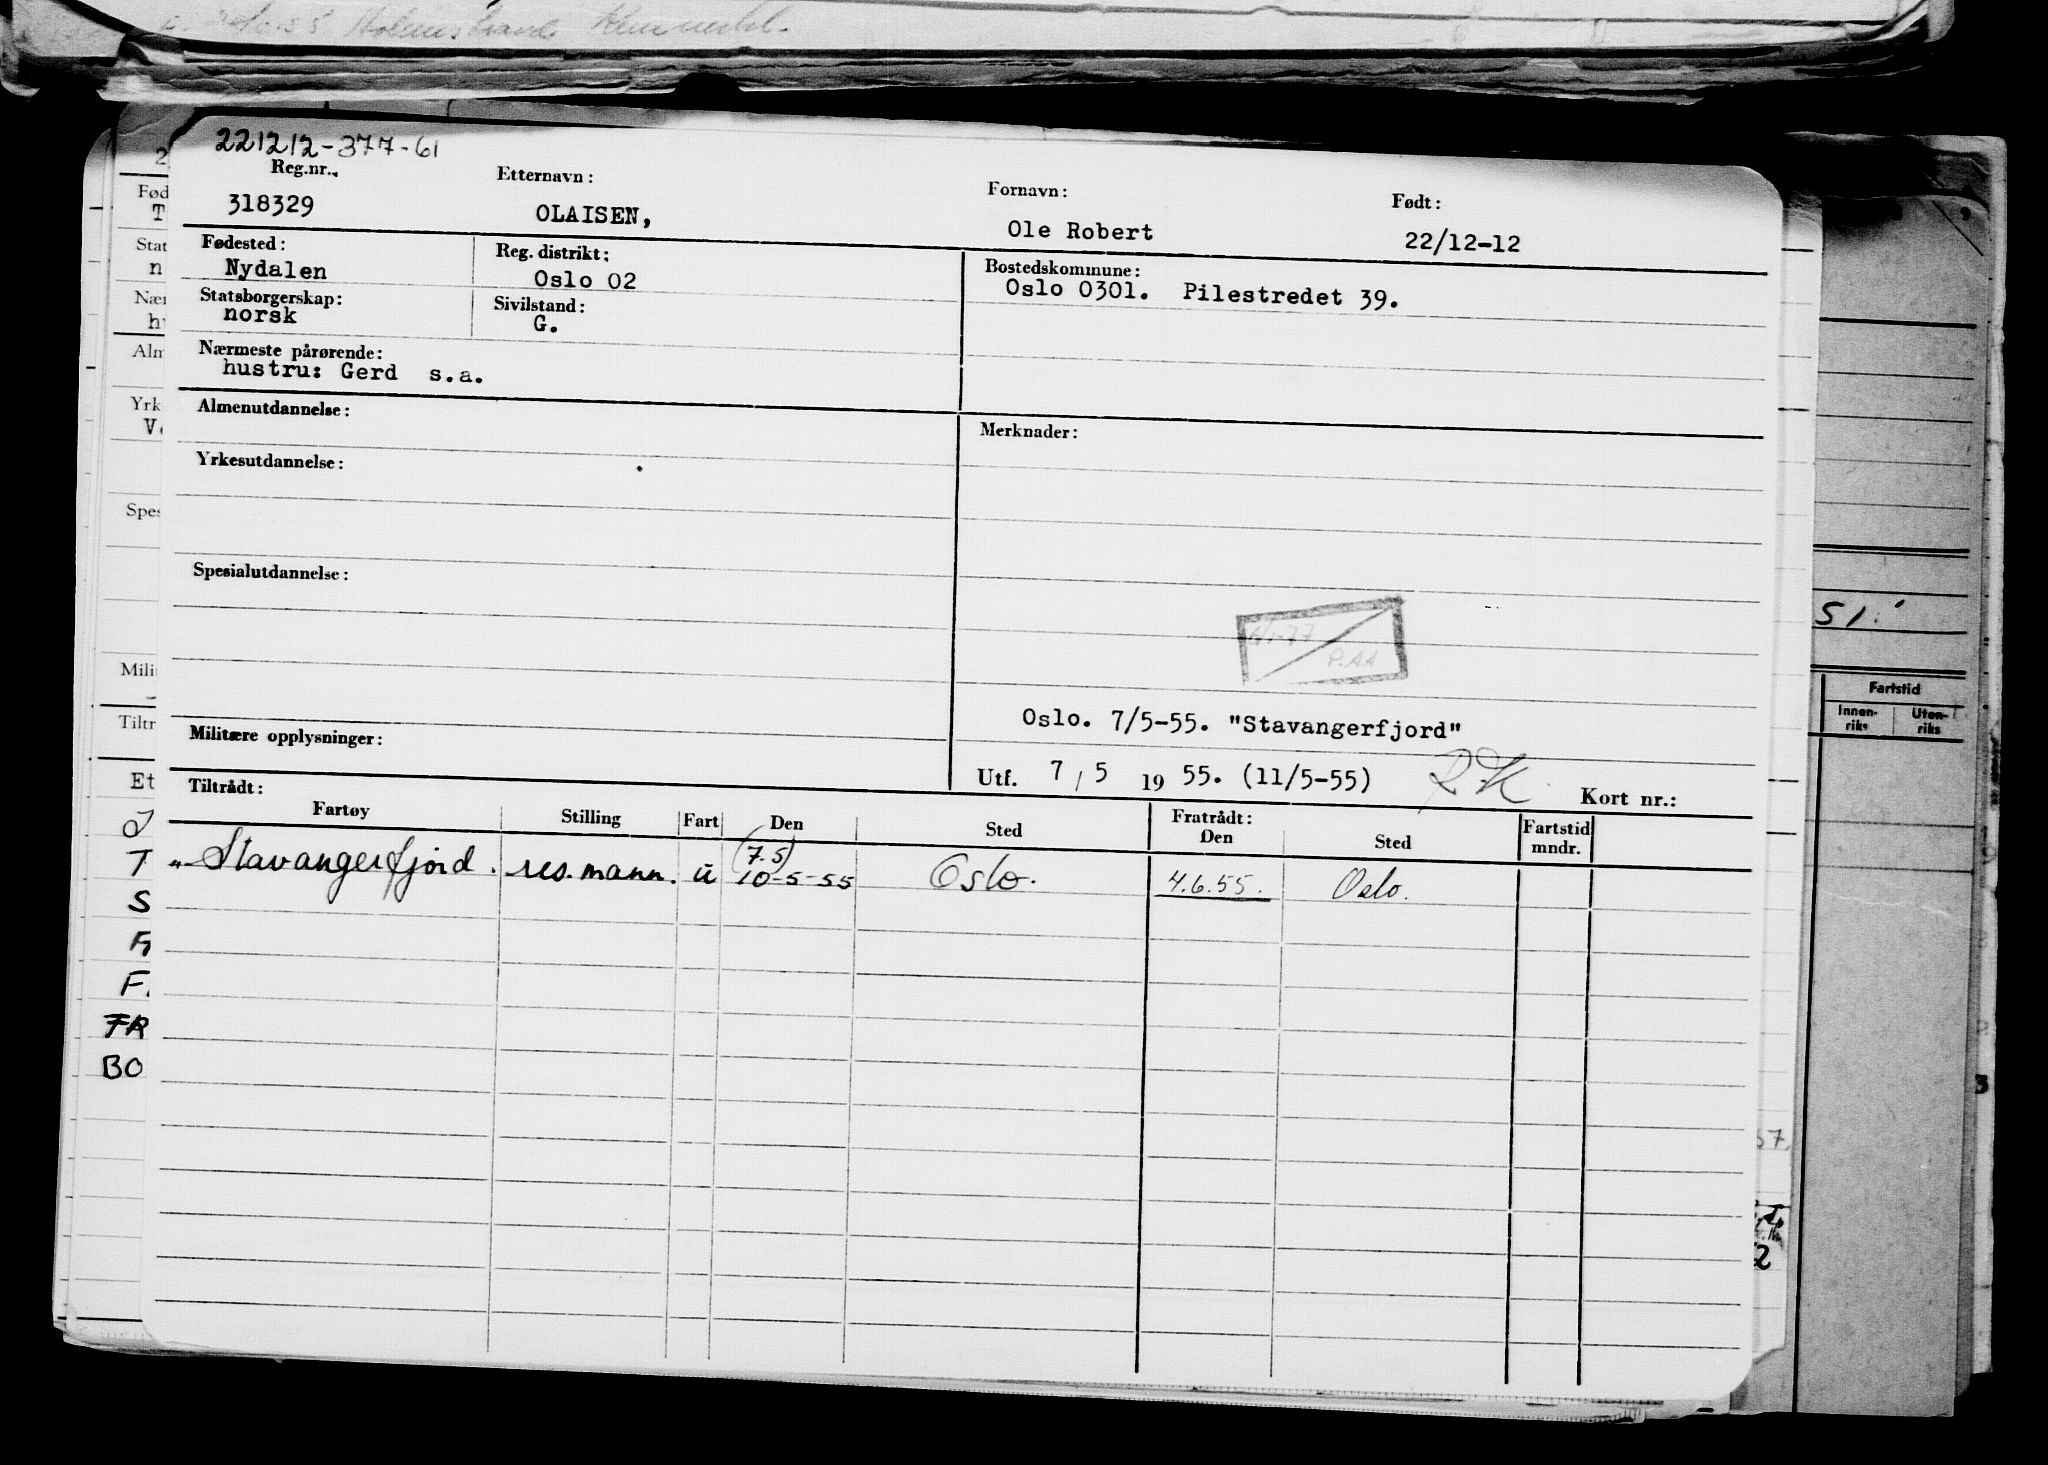 221212-377-61
Reg.nr.
318329
Etternavn:
OLAISEN,
Fornavn:
Ole Robert
Født:
22/12-12
Fødested:
Nydalen
Reg. distrikt:
Oslo 02
Bostedskommune:
Oslo 0301. Pilestredet 39.
Statsborgerskap:
norsk
Sivilstand:
G.
Nærmeste pårørende:
hustru: Gerd s.a.
Almenutdannelse:
Merknader:
Yrkesutdannelse:
Spesialutdannelse:
P.AA
Oslo. 7/5-55. "Stavangerfjord"
Militære opplysninger:
Utf. 7 / 5 19 55. (11/5-55)
Kort nr.:
Tiltrådt:
Fartøy Stilling Fart Den Sted Fratrådt: Den Sted Fartstid mndr.
(7.5)
" Stavangerfjord. res. mann. u 10-5-55 Oslo. 4.6.55. Oslo.
Fød
T
Stat
n
Nær
h
Alm
Yrk
V
Spes
Milit
Tiltr
Et
T
S
F.
FR
BO
51.
Fartstid
Innen-riks
Uten-riks
3
57.
2